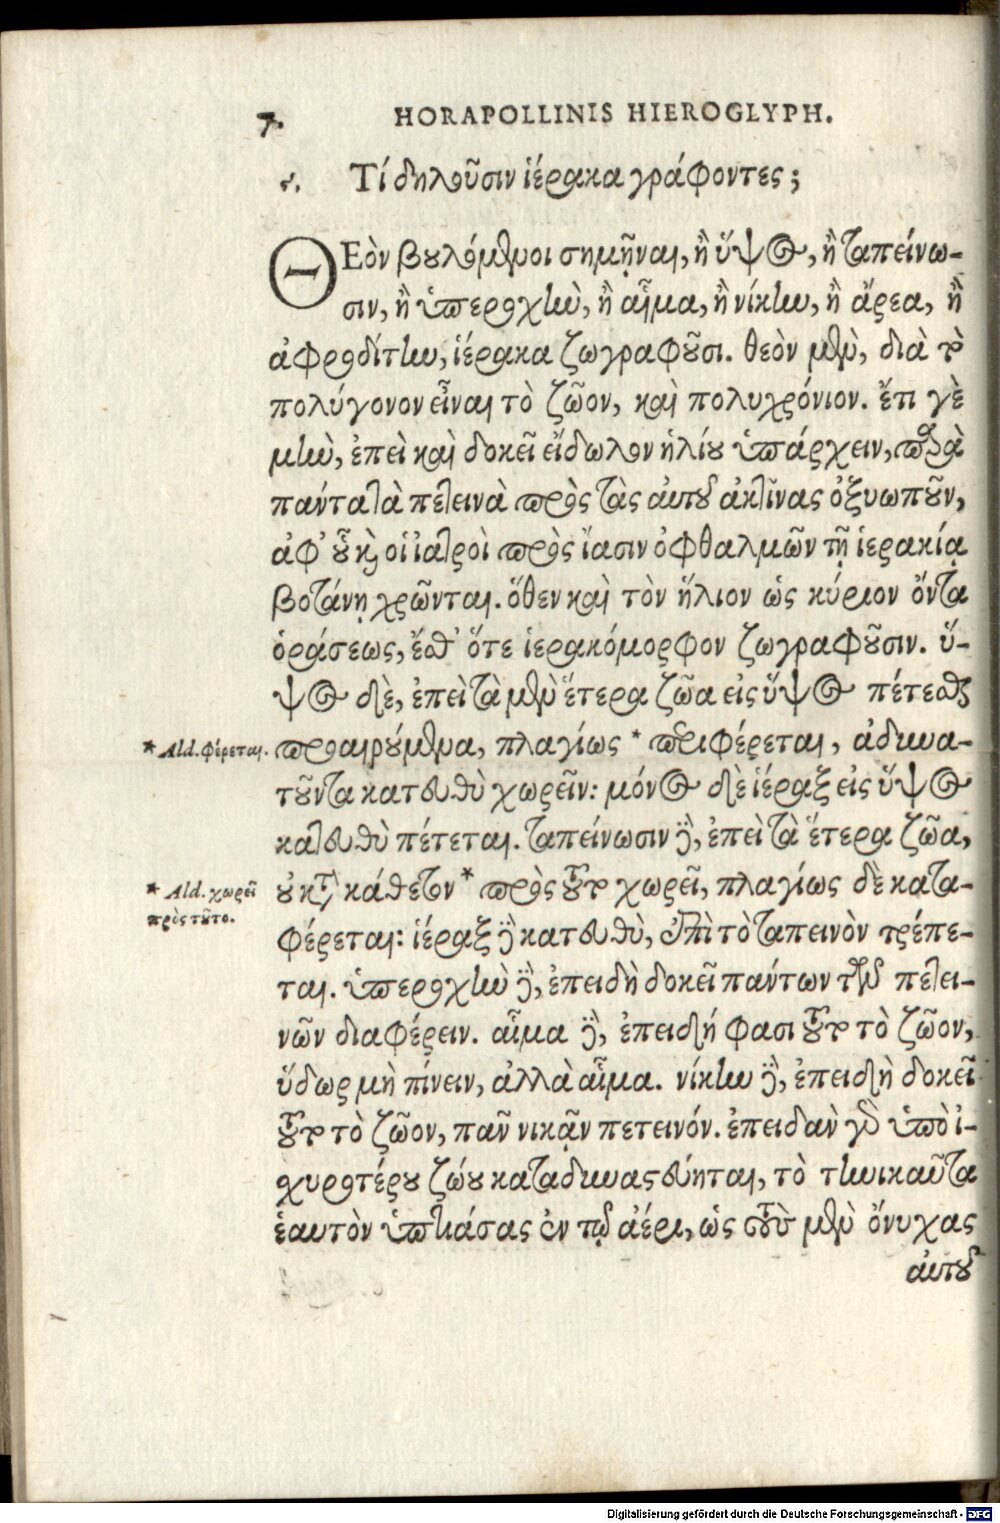 7.
HORAPOLLINIS HIEROGLYPH.
ϛ. Τί δηλοῦσιν ἱέρακα γράφοντες;
ΘΕὸν βουλόμενοι σημῆναι, ἢ ὕψος, ἢ ταπείνω-
σιν, ἢ ὑπεροχὴν, ἢ αἷμα, ἢ νίκην, ἢ ἄρεα, ἢ
ἀφροδίτην, ἱέρακα ζωγραφοῦσι. θεὸν μὲν, διὰ τὸ
πολύγονον εἶναι τὸ ζῶον, καὶ πολυχρόνιον. ἔτι γὲ
μὴν, ἐπεὶ καὶ δοκεῖ εἴδωλον ἡλίου ὑπάρχειν, παρὰ
πάντα τὰ πετεινὰ πρὸς τὰς αὐτοῦ ἀκτῖνας ὀξυωποῦν,
ἀφ' οὗ καὶ οἱ ἰατροὶ πρὸς ἴασιν ὀφθαλμῶν τῇ ἱερακίᾳ
βοτάνῃ χρῶνται. ὅθεν καὶ τὸν ἥλιον ὡς κύριον ὄντα
ὁράσεως, ἔσθ' ὅτε ἱερακόμορφον ζωγραφοῦσιν. ὕ-
ψος δὲ, ἐπεὶ τὰ μὲν ἕτερα ζῶα εἰς ὕψος πέτεσθαι
* Ald. φέρεται.
προαιρούμενα, πλαγίως * περιφέρεται, ἀδυνα-
τοῦντα κατευθὺ χωρεῖν: μόνος δὲ ἱέραξ εἰς ὕψος
κατευθὺ πέτεται. ταπείνωσιν δὲ, ἐπεὶ τὰ ἕτερα ζῶα,
* Ald. χωρεῖ
πρὸς τοῦτο.
οὐ κατὰ κάθετον * πρὸς τοῦτο χωρεῖ, πλαγίως δὲ κατα-
φέρεται: ἱέραξ δὲ κατευθὺ, ἐπὶ τὸ ταπεινὸν τρέπε-
ται. ὑπεροχὴν δὲ, ἐπειδὴ δοκεῖ πάντων τῶν πετει-
νῶν διαφέρειν. αἷμα δὲ, ἐπειδή φασι τοῦτο τὸ ζῶον,
ὕδωρ μὴ πίνειν, ἀλλὰ αἷμα. νίκην δὲ, ἐπειδὴ δοκεῖ
τοῦτο τὸ ζῶον, πᾶν νικᾷν πετεινόν. ἐπειδὰν γὰρ ὑπὸ ἰ-
χυροτέρου ζώου καταδυναστεύηται, τὸ τηνικαῦτα
ἑαυτὸν ὑπτιάσας ἐν τῷ ἀέρι, ὡς τοὺς μὲν ὄνυχας
αὐτοῦ
Digitalisierung gefördert durch die Deutsche Forschungsgemeinschaft - DFG